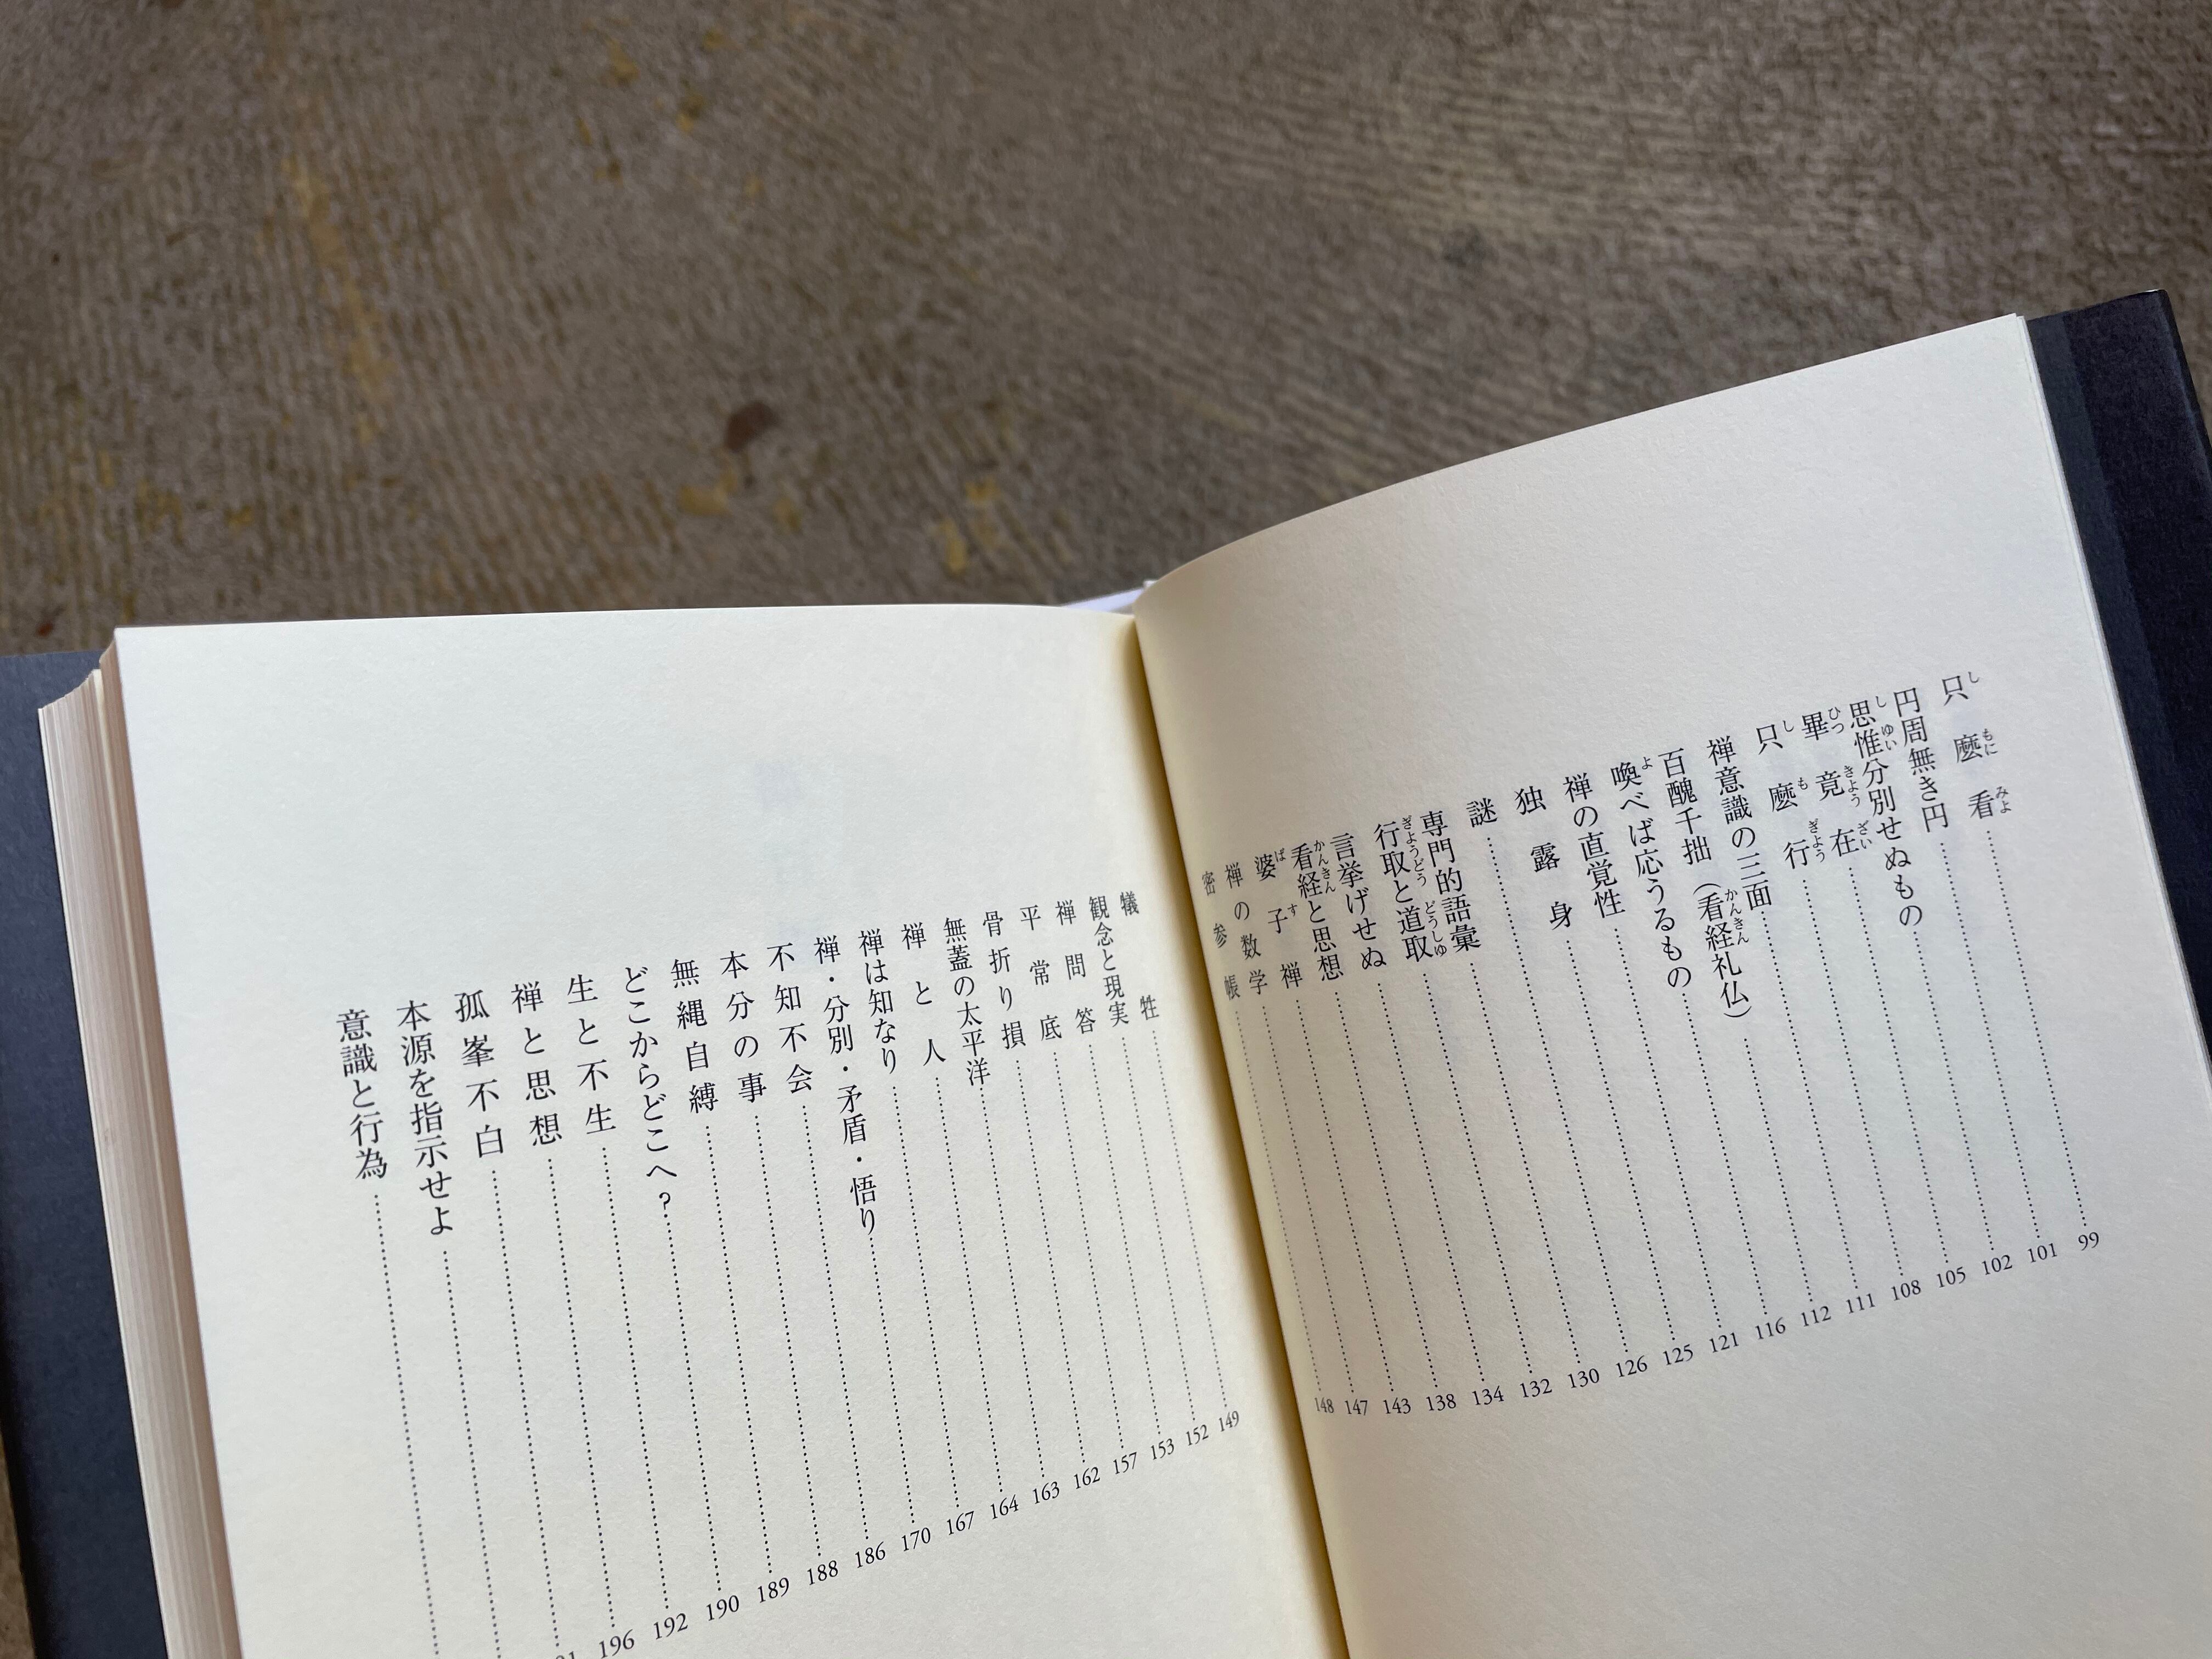 しもにみよ
只麼看……99
円周無き円……101
しゆい
思惟分別せぬもの……102
ひつきようざい
畢竟在……105
しもぎよう
只麼行……108
禅意識の三面……111
かんきん
百醜千拙（看経礼仏）……112
よ
喚べば応うるもの……116
禅の直覚性……121
独露身……125
謎……126
専門的語彙……130
ぎようどう どうしゆ
行取と道取……132
言挙げせぬ……134
かんきん
看経と思想……138
ばす
婆子禅……143
禅の数学……147
密参帳……148
犠牲……149
観念と現実……152
禅問答……153
平常底……157
骨折り損……162
無蓋の太平洋……163
禅と人……164
禅は知なり……167
禅・分別・矛盾・悟り……170
不知不会……186
本分の事……188
無縄自縛……189
どこからどこへ？……190
生と不生……192
禅と思想……196
孤峯不白……
本源を指示せよ……
意識と行為……